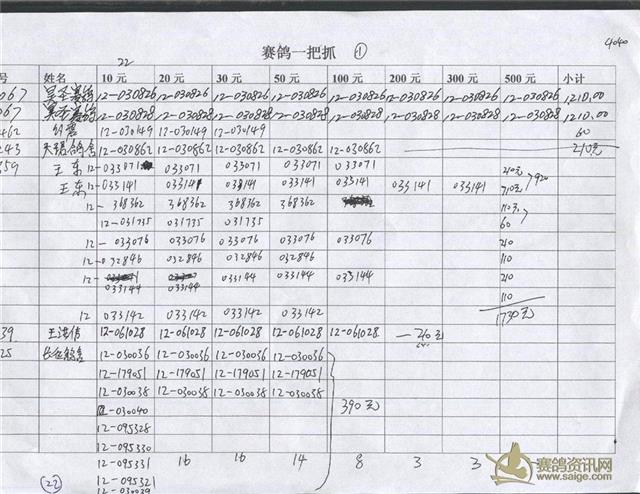 22
赛鸽一把抓 ①
4040
号 姓名 10元 20元 30元 50元 100元 200元 300元 500元 小计
067 昊圣赛鸽 12-030826 12-030826 12-030826 12-030826 12-030826 12-030826 12-030826 12-030826 1210.00
067 昊圣赛鸽 12-030828 12-030828 12-030828 12-030828 12-030828 12-030828 12-030828 12-030828 1210.00
462 12-030149 12-030149 12-030149 60
243 鸽舍 12-030862 12-030862 12-030862 12-030862 12-030862 210元
359 王东 12-033071 033071 033071 033071 033071 210元
王东 12-033141 033141 033141 033141 033141 033141 033141 710元 >920
12-368362 368362 368362 368362 110元
12-031735 031735 031735 60
12-033076 033076 033076 033076 033076 210
12-032846 032846 032846 032846 110
12-033144 033144 033144 033144 033144 210
110
12 033142 033142 033142 033142 1730元
39 王洪伟 12-061028 12-061028 12-061028 12-061028 12-061028 —210元
25 12-030036 12-030036 12-030036 12-030036
12-179051 12-179051 12-179051 12-179051
12-030038 12-030038 12-030038 12-030038
12-030040 390元
12-095328
12-095330
12-095331 16 16 14 8 3 3
(22) 12-095321
12-030039
赛鸽资讯网
www.saige.com